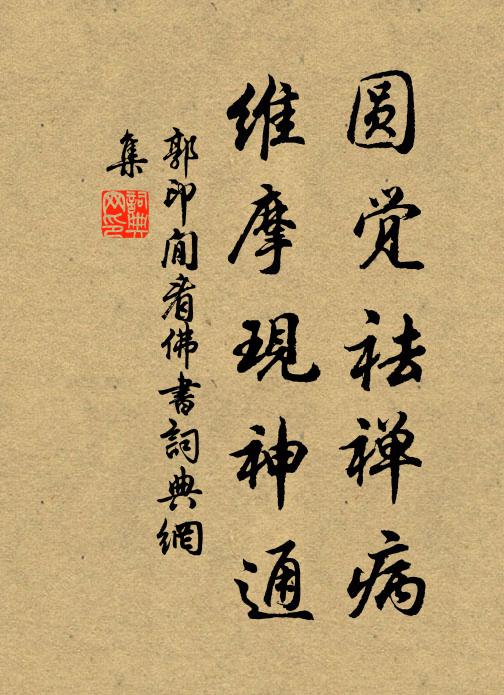 圆觉祛禅病
维摩現神通
郭印闲看佛書詞典網
集
詞典网印